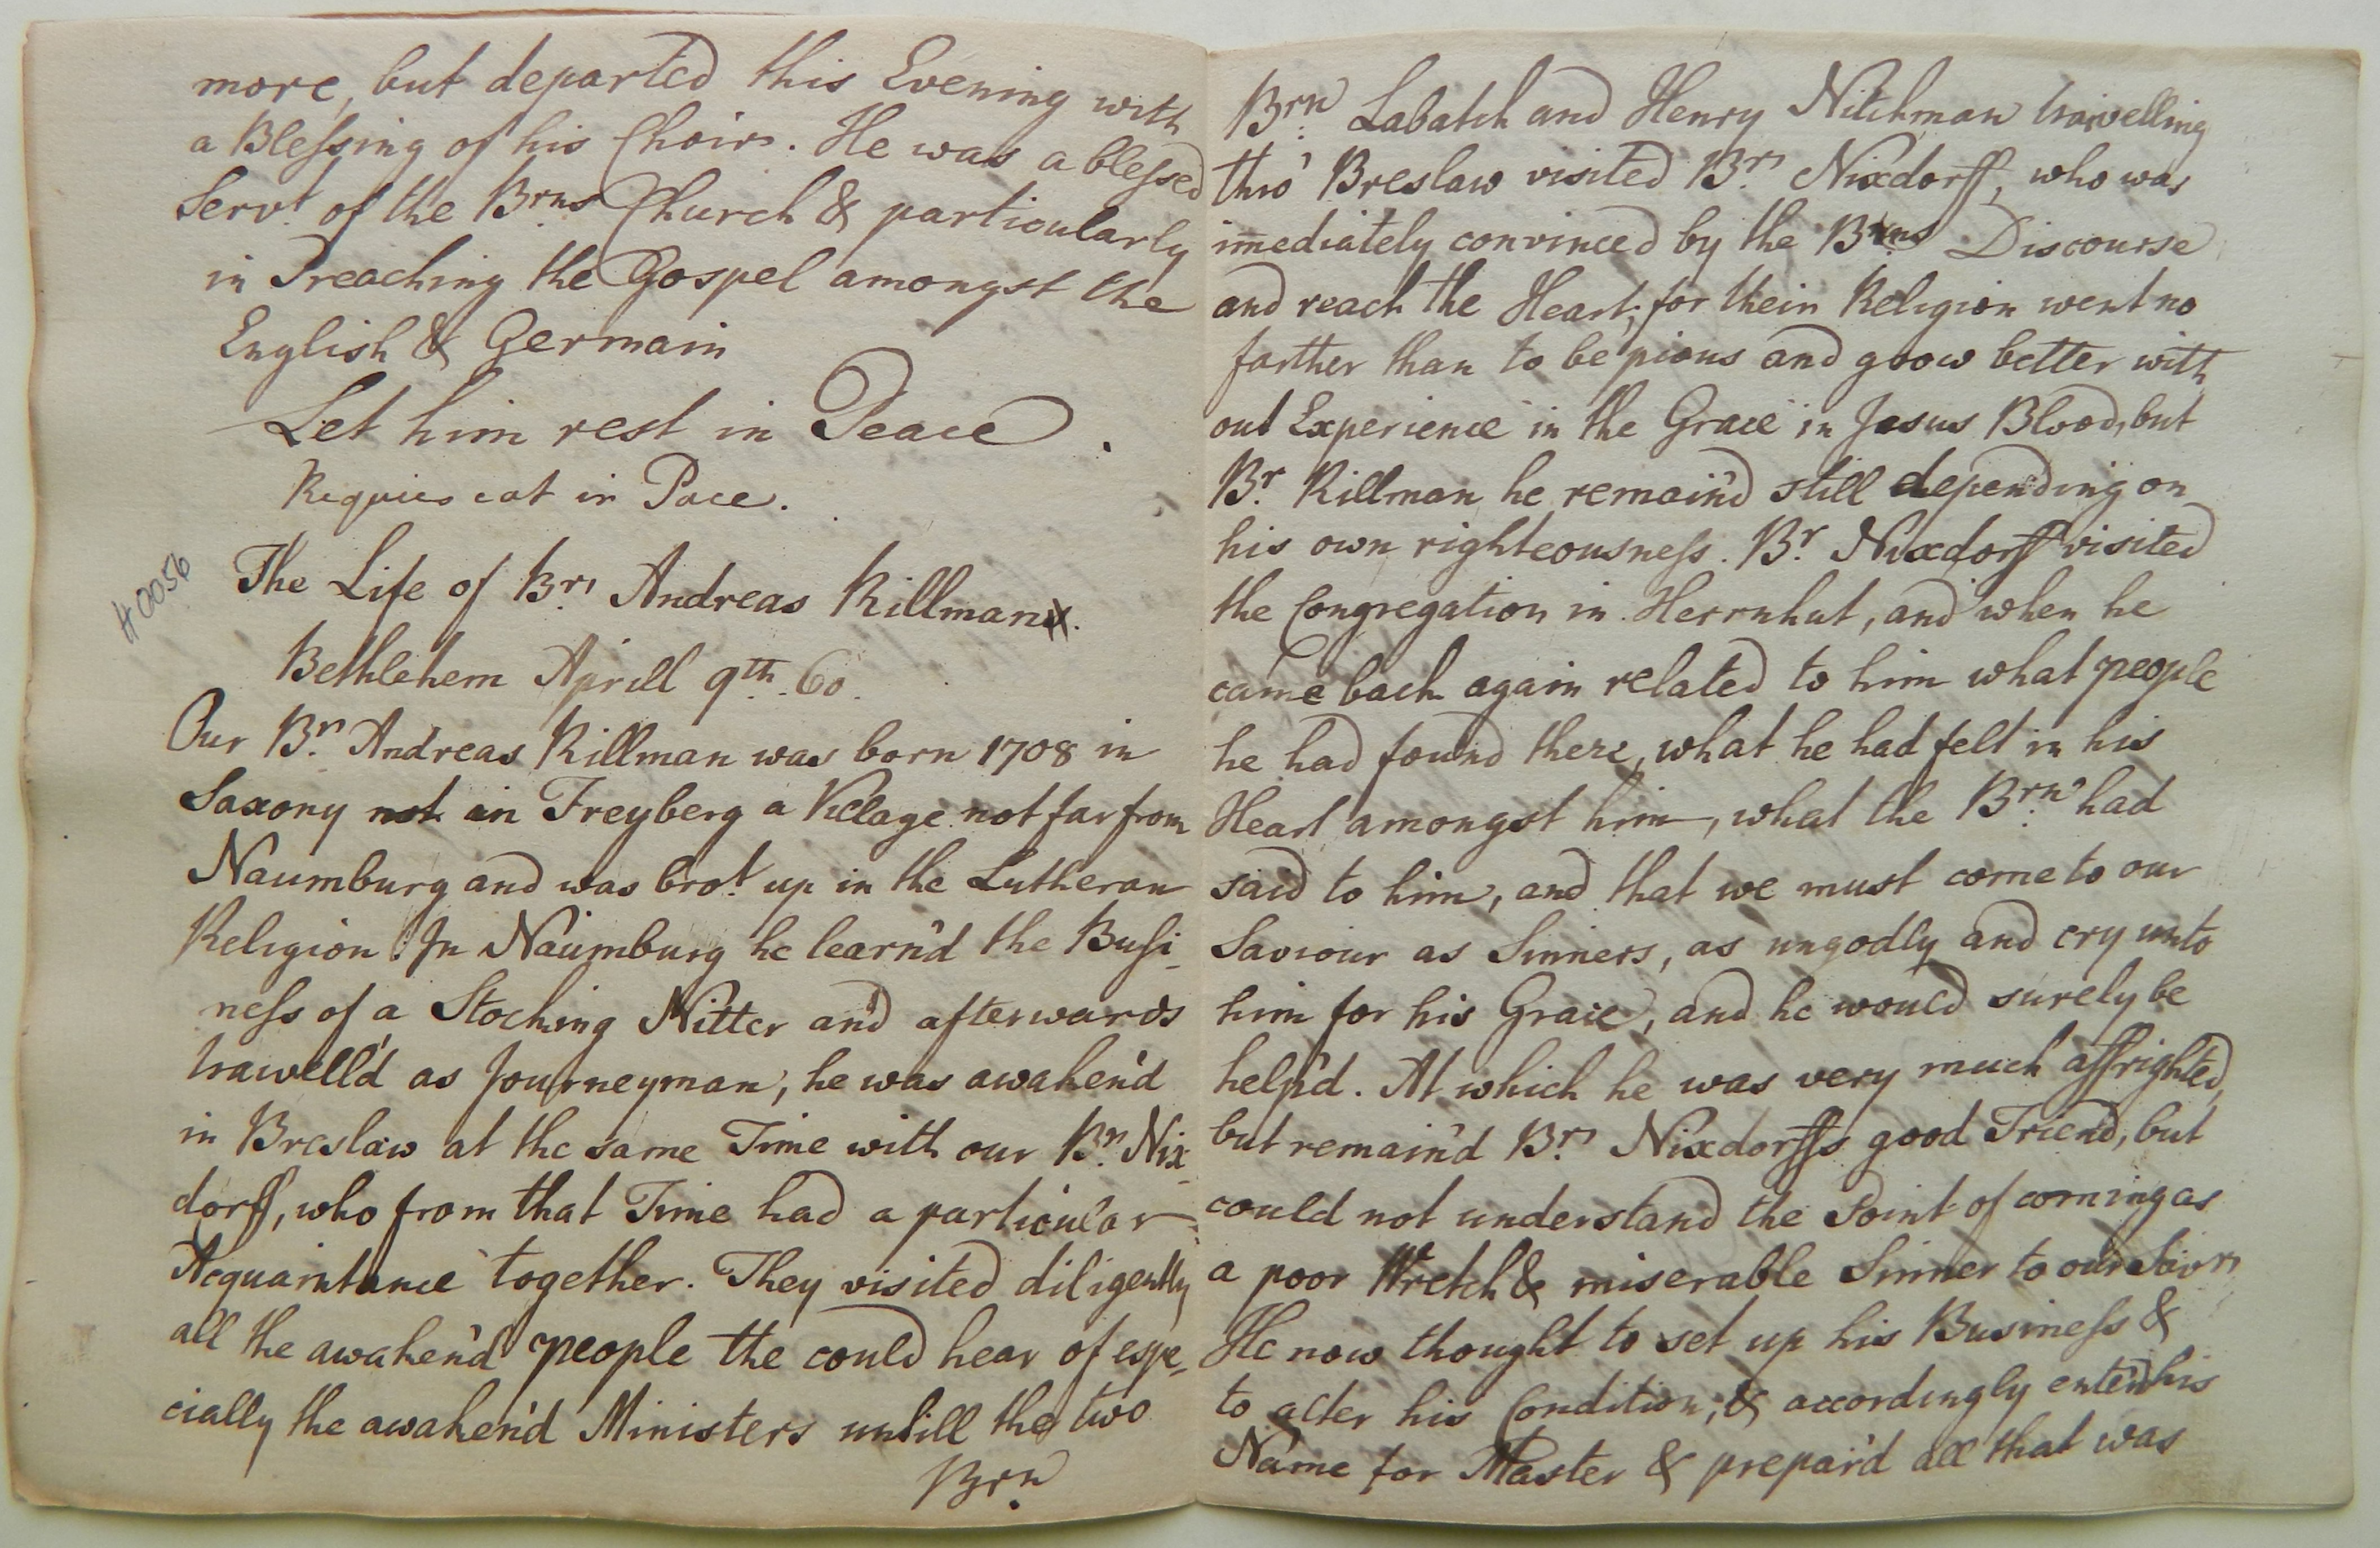 more, but departed this Evening with
a Blessing of his Choir. He was a blessed
Servt. of the Brns Church & particularly
in Preaching the Gospel amongst the
English & Germain
Let him rest in Peace.
Requies cat in Pace.
H0056
The Life of Br. Andreas Killman.
Bethlehem Aprill 9th. 60.
Our Br. Andreas Killman was born 1708 in
Saxony not in Freyberg a Village not far from
Naumburg and was brot. up in the Lutheran
Religion. In Naumburg he learn'd the Busi
ness of a Stocking Nitter and afterwards
trawell'd as Journeyman, he was awaken'd
in Breslaw at the same Time with our Br. Nix
dorff, who from that Time had a particular
Acquaintance together. They visited diligently
all the awaken'd people the could hear of espe
cially the awaken'd Ministers untill the two
Brn.
Brn. Labatch and Henry Nitchman trawelling
thro' Breslaw visited Br. Nixdorff, who was
imediately convinced by the Brns Discourse
and reach the Heart; for their Religion went no
farther than to be pious and grow better with
out Experience in the Grace in Jesus Blood, but
Br. Killman he remain'd still depending on
his own righteousness. Br. Nixdorff visited
the Congregation in Herrnhut, and when he
came back again related to him what people
he had found there, what he had felt in his
Heart amongst him, what the Brn. had
said to him, and that we must come to our
Saviour as Sinners, as ungodly and cry unto
him for his Grace, and he would surely be
help'd. At which he was very much affrighted,
but remain'd Br. Nixdorffs good Friend, but
could not understand the Point of coming as
a poor Wretch & miserable Sinner to our Savr.
He now thought to set up his Business &
to alter his Condition; & accordingly enter'd his
Name for Master & prepar'd all that was